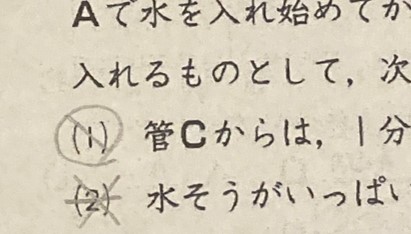 Aで水を入れ始めてか
入れるものとして，次
(1) 管Cからは，1分
(2) 水そうがいっぱい